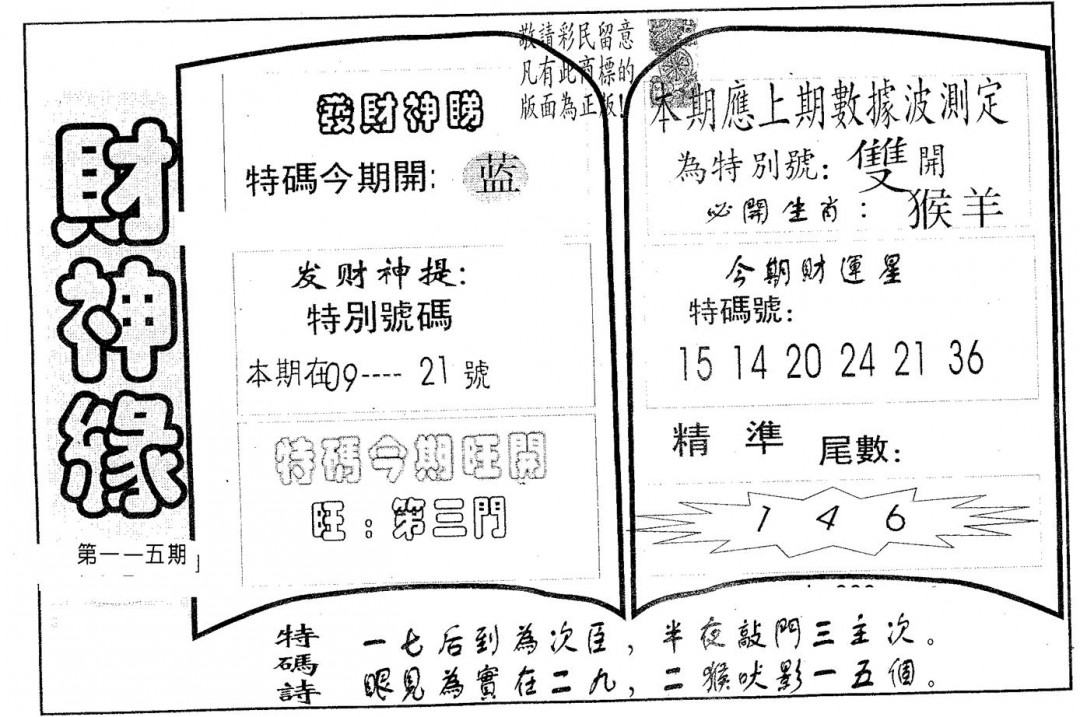 敬請彩民留意
凡有此商標的
版面為正版!
財神緣
第一一五期
發財神睇
特碼今期開: 蓝
发财神提:
特別號碼
本期在09----21號
特碼今期旺開
旺:第三門
本期應上期數據波測定
為特別號: 雙開
必開生肖: 猴羊
今期財運星
特碼號:
15 14 20 24 21 36
精準尾數:
1 4 6
特碼詩
一七后到為次臣,半夜敲門三主次。
眼見為實在二九,二猴吠影一五個。